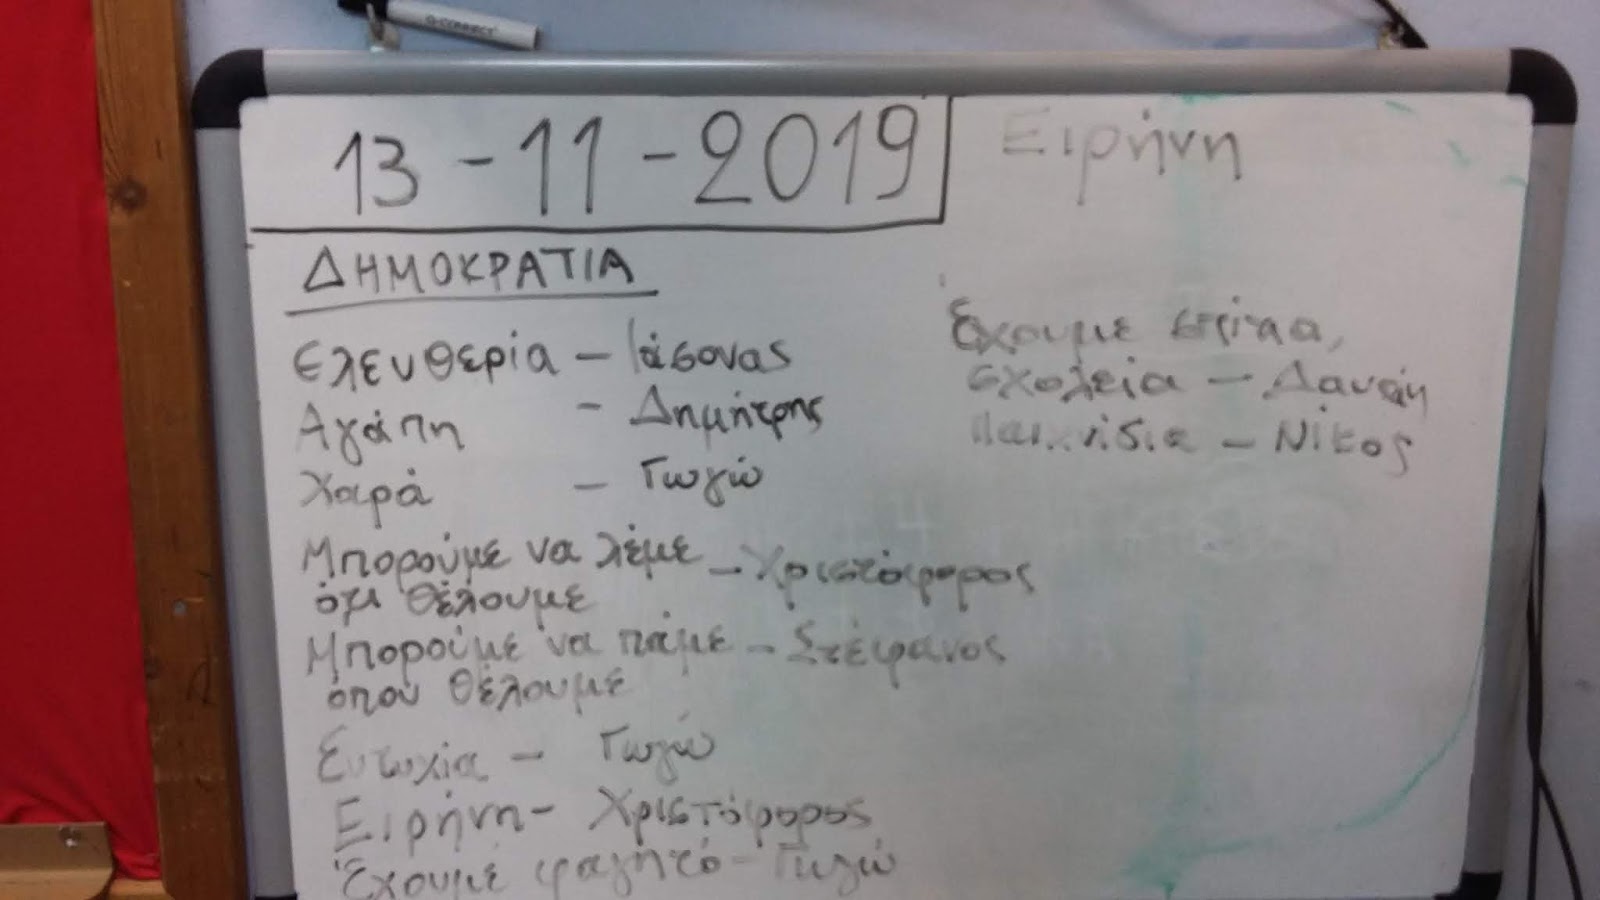 Q-CONNECT
13-11-2019
ΔΗΜΟΚΡΑΤΙΑ
Ελευθερία - Ιάσονας
Αγάπη - Δημήτρης
Χαρά - Γωγώ
Μπορούμε να λέμε - Χριστόφορος
ότι θέλουμε
Μπορούμε να πάμε - Στέφανος
όπου θέλουμε
Ευτυχία - Γωγώ
Ειρήνη - Χριστόφορος
Έχουμε φαγητό - Γωγώ
Ειρήνη
Έχουμε σπίτια,
σχολεία - Δανάη
Παιχνίδια - Νίκος